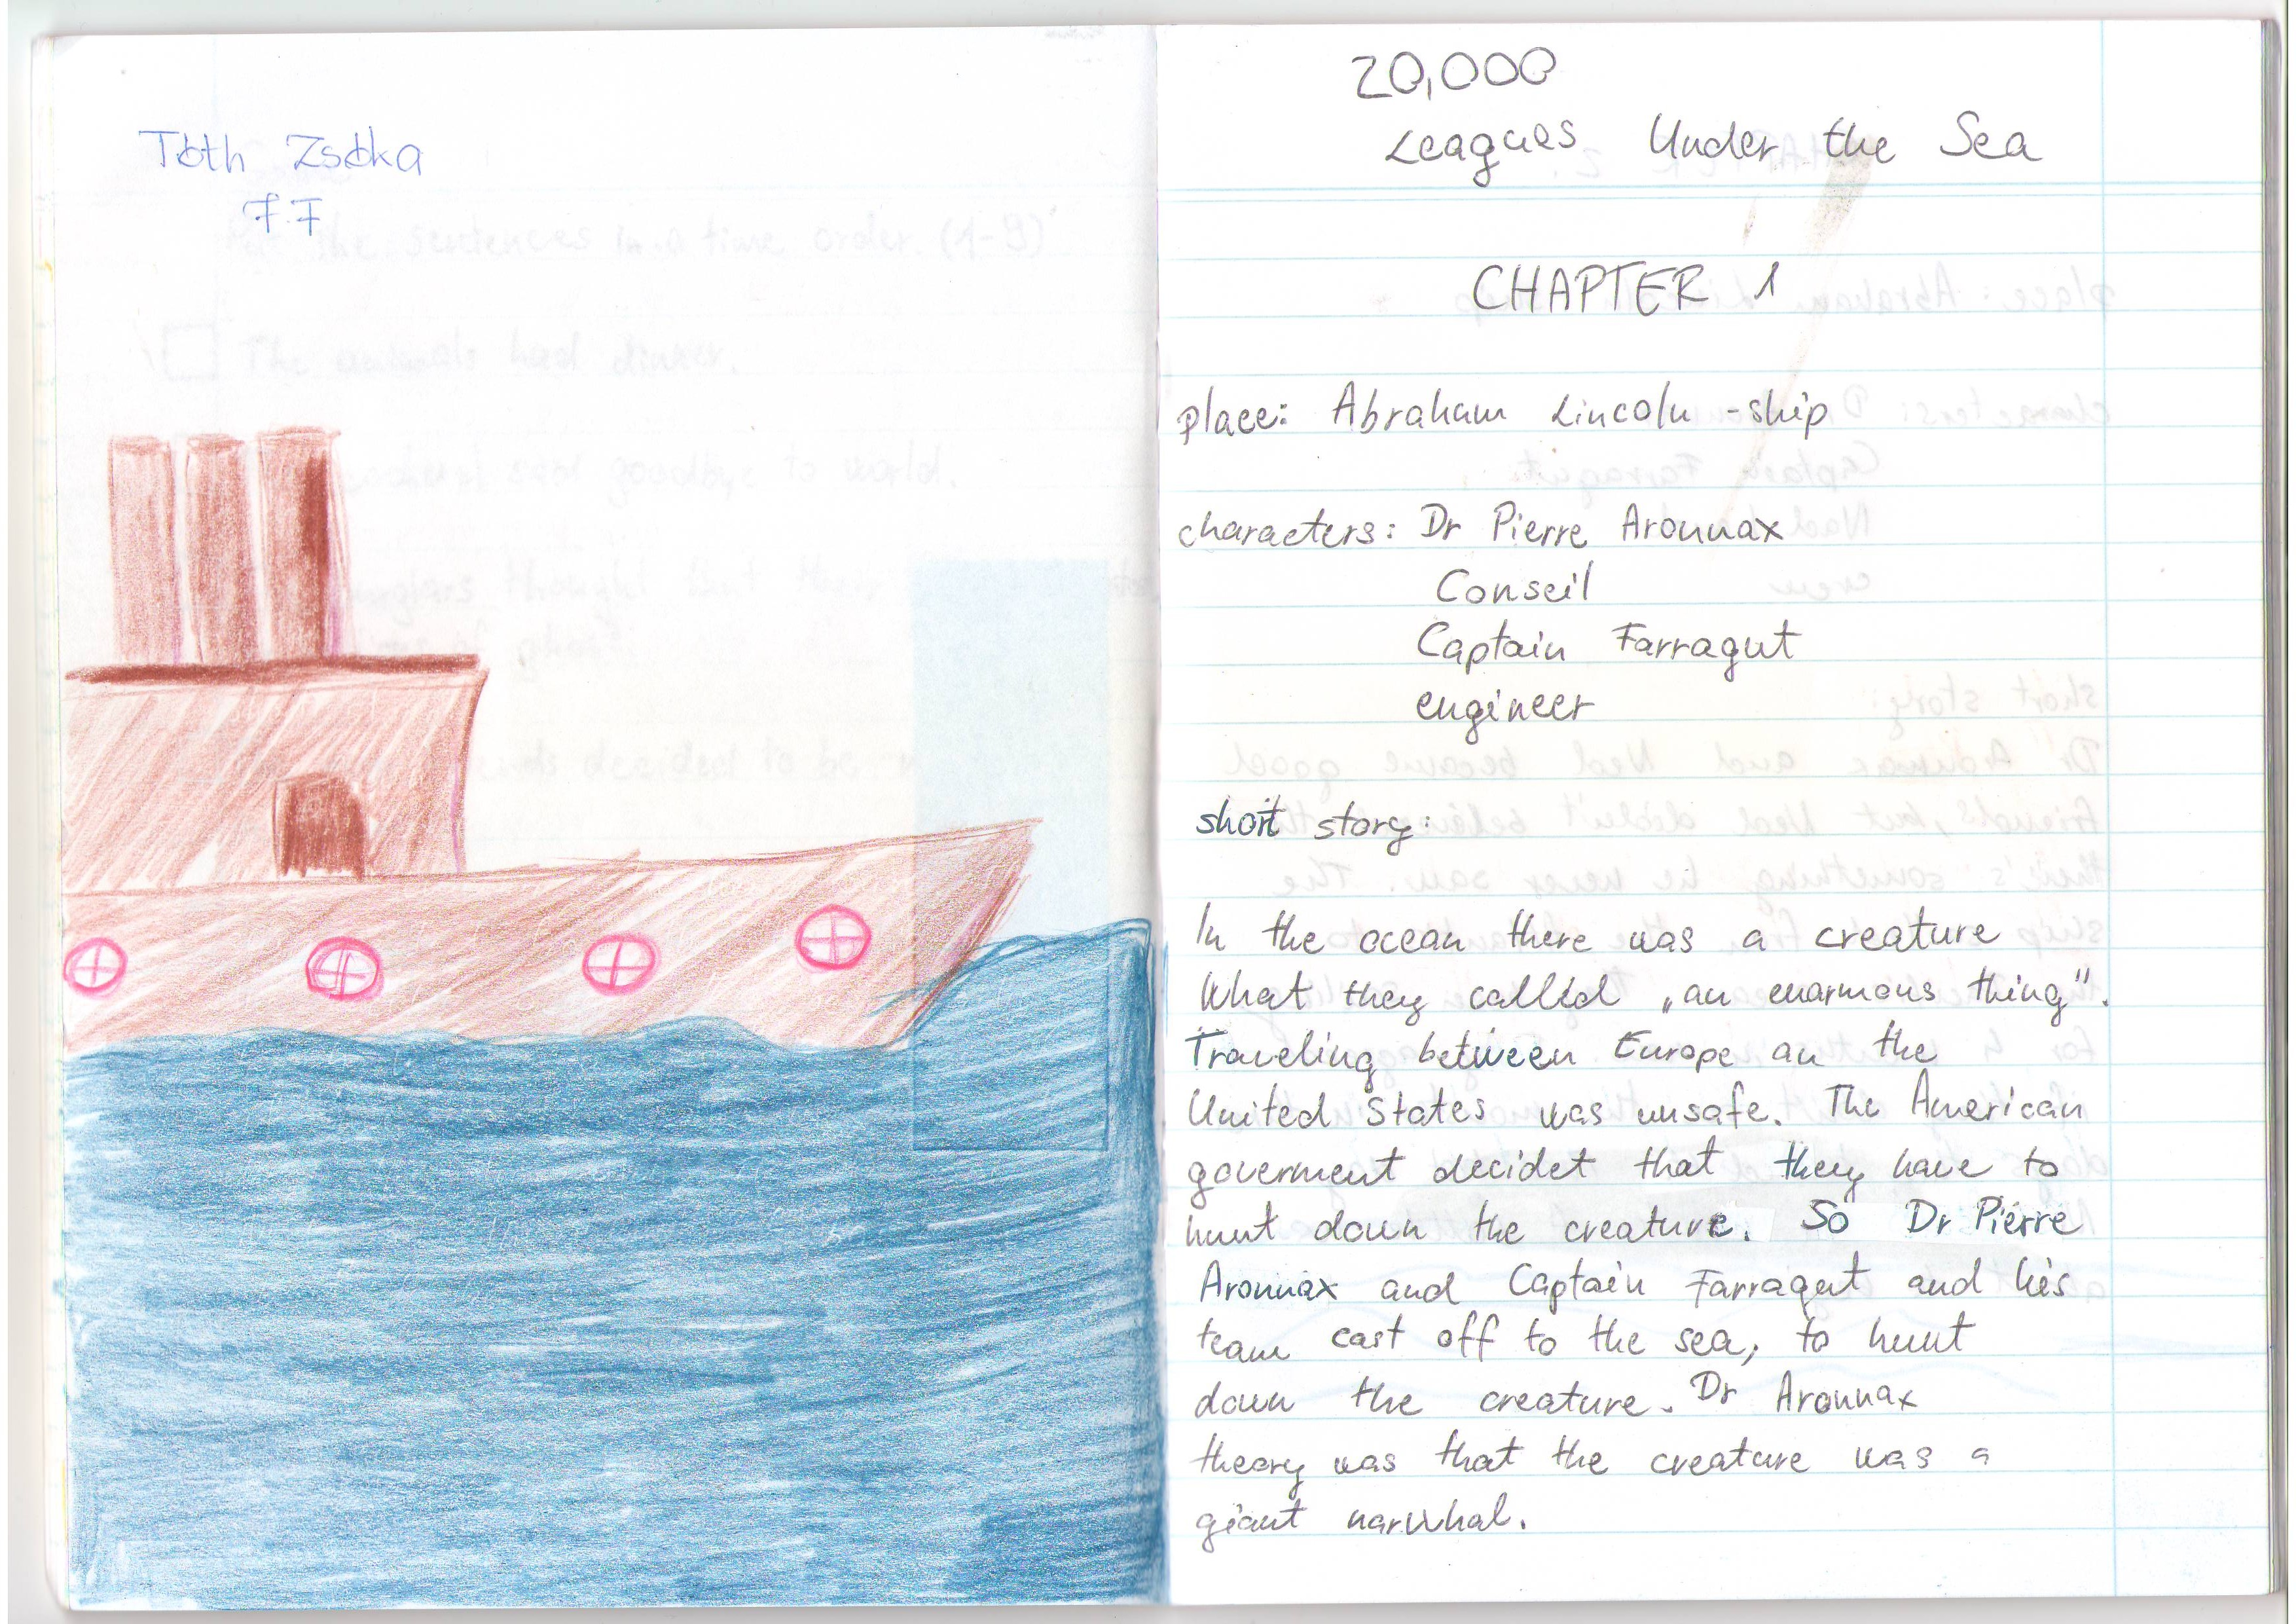 Tóth Zsóka
7.F
20,000
Leagues Under the Sea
CHAPTER 1
place: Abraham Lincoln -ship
characters: Dr Pierre Aronnax
Conseil
Captain Farragut
engineer
short story:
In the ocean there was a creature
What they callld „an enarmous thing".
Traveling between Europe an the
United States was unsafe. The American
goverment decidet that they have to
hunt down the creature. So Dr Pierre
Aronnax and Captain Farragut and his
team cast off to the sea, to hunt
down the creature. Dr Aronnax
theory was that the creature was a
giant narwhal.